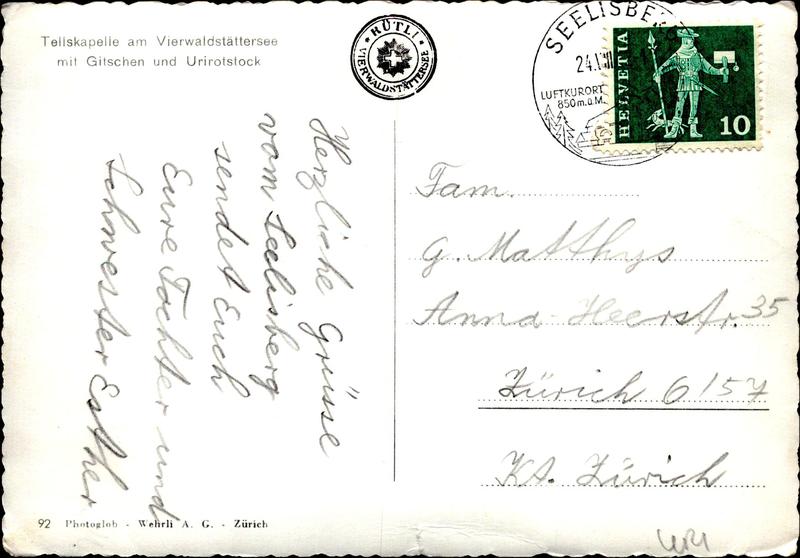 Tellskapelle am Vierwaldstättersee
mit Gitschen und Urirotstock
RÜTLI
VIERWALDSTÄTTERSEE
SEELISBERG
24.
LUFTKURORT
850 m.ü.M.
HELVETIA
10
Herzliche Grüsse
vom Seelisberg
sendet Euch
Eure Tochter und
Schwester Esther
Fam.
G. Matthys
Anna-Heerstr. 35
Zürich 6/57
Kt. Zürich
92 Photoglob - Wehrli A. G. - Zürich